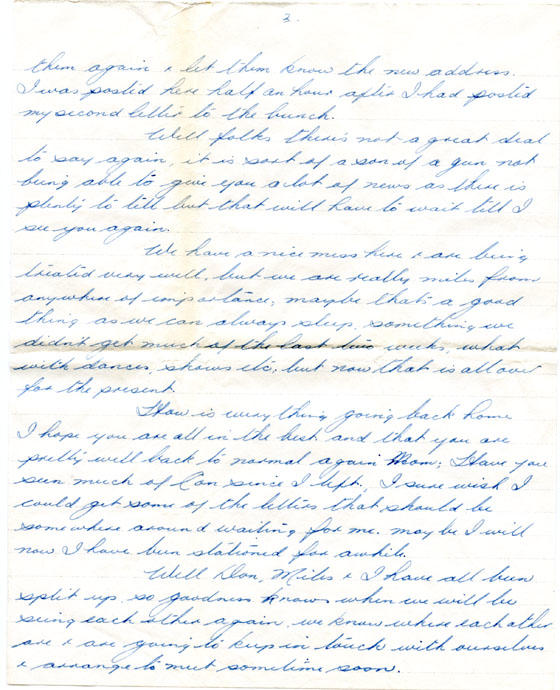 3.
them again & let them know the new address.
I was posted here half an hour after I had posted
my second letter to the bunch.
Well folks there's not a great deal
to say again, it is sort of a son of a gun not
being able to give you a lot of news as there is
plenty to tell but that will have to wait till I
see you again.
We have a nice mess here & are being
treated very well, but we are really miles from
anywhere of importance; maybe that's a good
thing as we can always sleep, something we
didn't get much of the last two weeks, what
with dances, shows etc, but now that is all over
for the present
How is everything going back home
I hope you are all in the best and that you are
pretty well back to normal again Mom; Have you
seen much of Con since I left, I sure wish I
could get some of the letters that should be
somewhere around waiting for me. maybe I will
now I have been stationed for awhile.
Well Don, Miles & I have all been
split up, so goodness knows when we will be
seing each other again, we know where each other
are & are going to keep in touch with ourselves
& arrange to meet sometime soon.